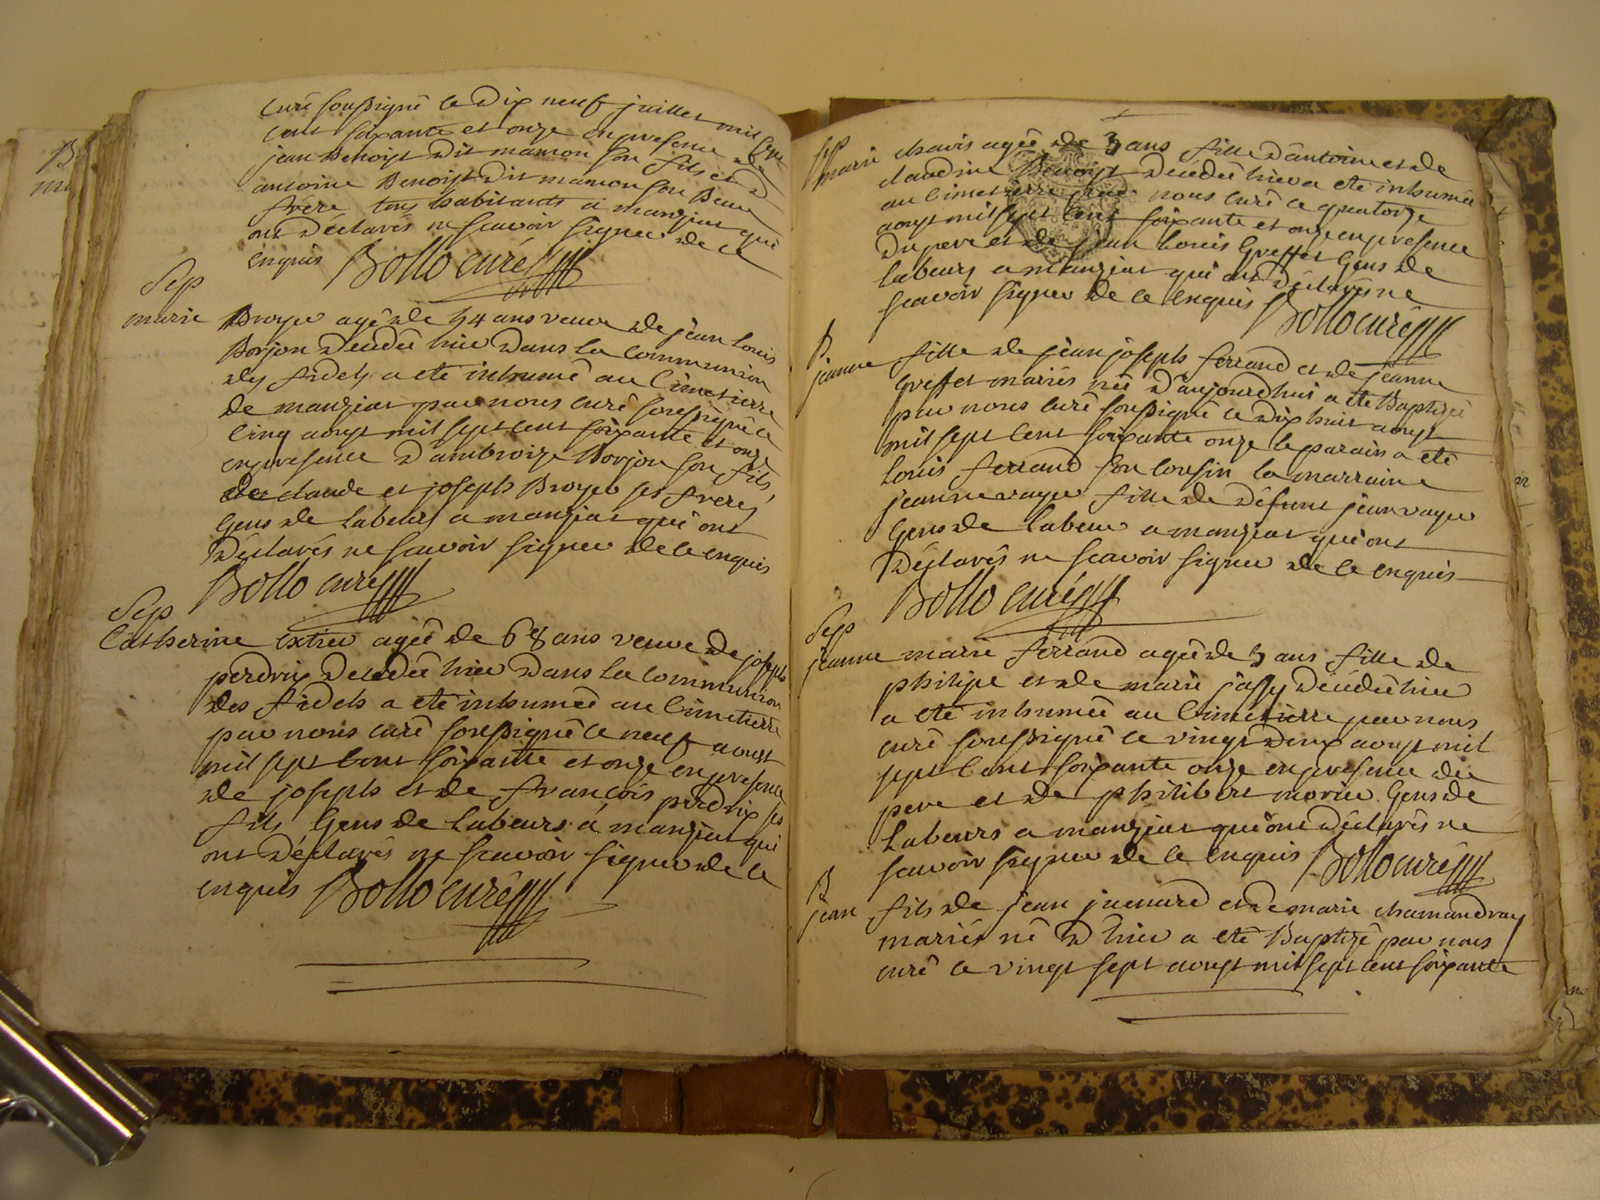 curé soussigné le dix neuf juillet mil sept
cent soixante et onze en presence de
jean Benoist dit manon son fils et d'
antoine Benoist dit manon son Beau
frere tous habitants a manziat qui
ont déclarés ne scavoir signer de ce
enquis Bollo curé
Sep
marie Broyer agée de 54 ans veuve de jean louis
Borjon décedée hier dans la communion
des fidels a eté inhumé au Cimetierre
de manziat par nous curé soussigné le
cinq aoust mil sept cent soixante et onze
en presence d'ambroize Borjon son fils,
de claude et joseph Broyer ses freres
Gens de labeurs a manziat qui ont
Déclarés ne scavoir signer de ce enquis
Bollo curé
Sep
Catherine extier agée de 68 ans veuve de joseph
perdrix décedée hier dans la communion
des fidels a eté inhumée au Cimetierre
par nous curé soussigné le neuf aoust
mil sept cent soixante et onze en presence
de joseph et de françois perdrix ses
fils Gens de labeurs a manziat qui
ont déclarés ne scavoir signer de ce
enquis Bollo curé
Sep
marie chavis agée de 3 ans fille d'antoine et de
claudine Benoist décedée hier a eté inhumée
au Cimetierre par nous curé le quatorze
aoust mil sept cent soixante et onze en presence
du pere et de jean louis Greffet Gens de
labeurs a manziat qui ont déclarés ne
scavoir signer de ce enquis Bollo curé
B
jeanne fille de jean joseph ferrand et de jeanne
Greffet mariés née d'aujourdhui a eté Baptizé
par nous curé soussigné le dix huit aoust
mil sept cent soixante onze le parain a eté
louis ferrand son cousin la marraine
jeanne vayer fille de défunt jean vayer
Gens de labeur a manziat qui ont
Déclarés ne scavoir signer de ce enquis
Bollo curé
Sep
jeanne marie ferrand agée de 3 ans fille de
philipe et de marie jassy décedée hier
a eté inhumée au Cimetierre par nous
curé soussigné le vingt deux aoust mil
sept cent soixante onze en presence du
pere et de philibert morier Gens de
labeurs a manziat qui ont déclarés ne
scavoir signer de ce enquis Bollo curé
B
jean fils de jean jacuard et de marie chamandray
mariés né d'hier a eté Baptizé par nous
curé le vingt sept aoust mil sept cent soixante